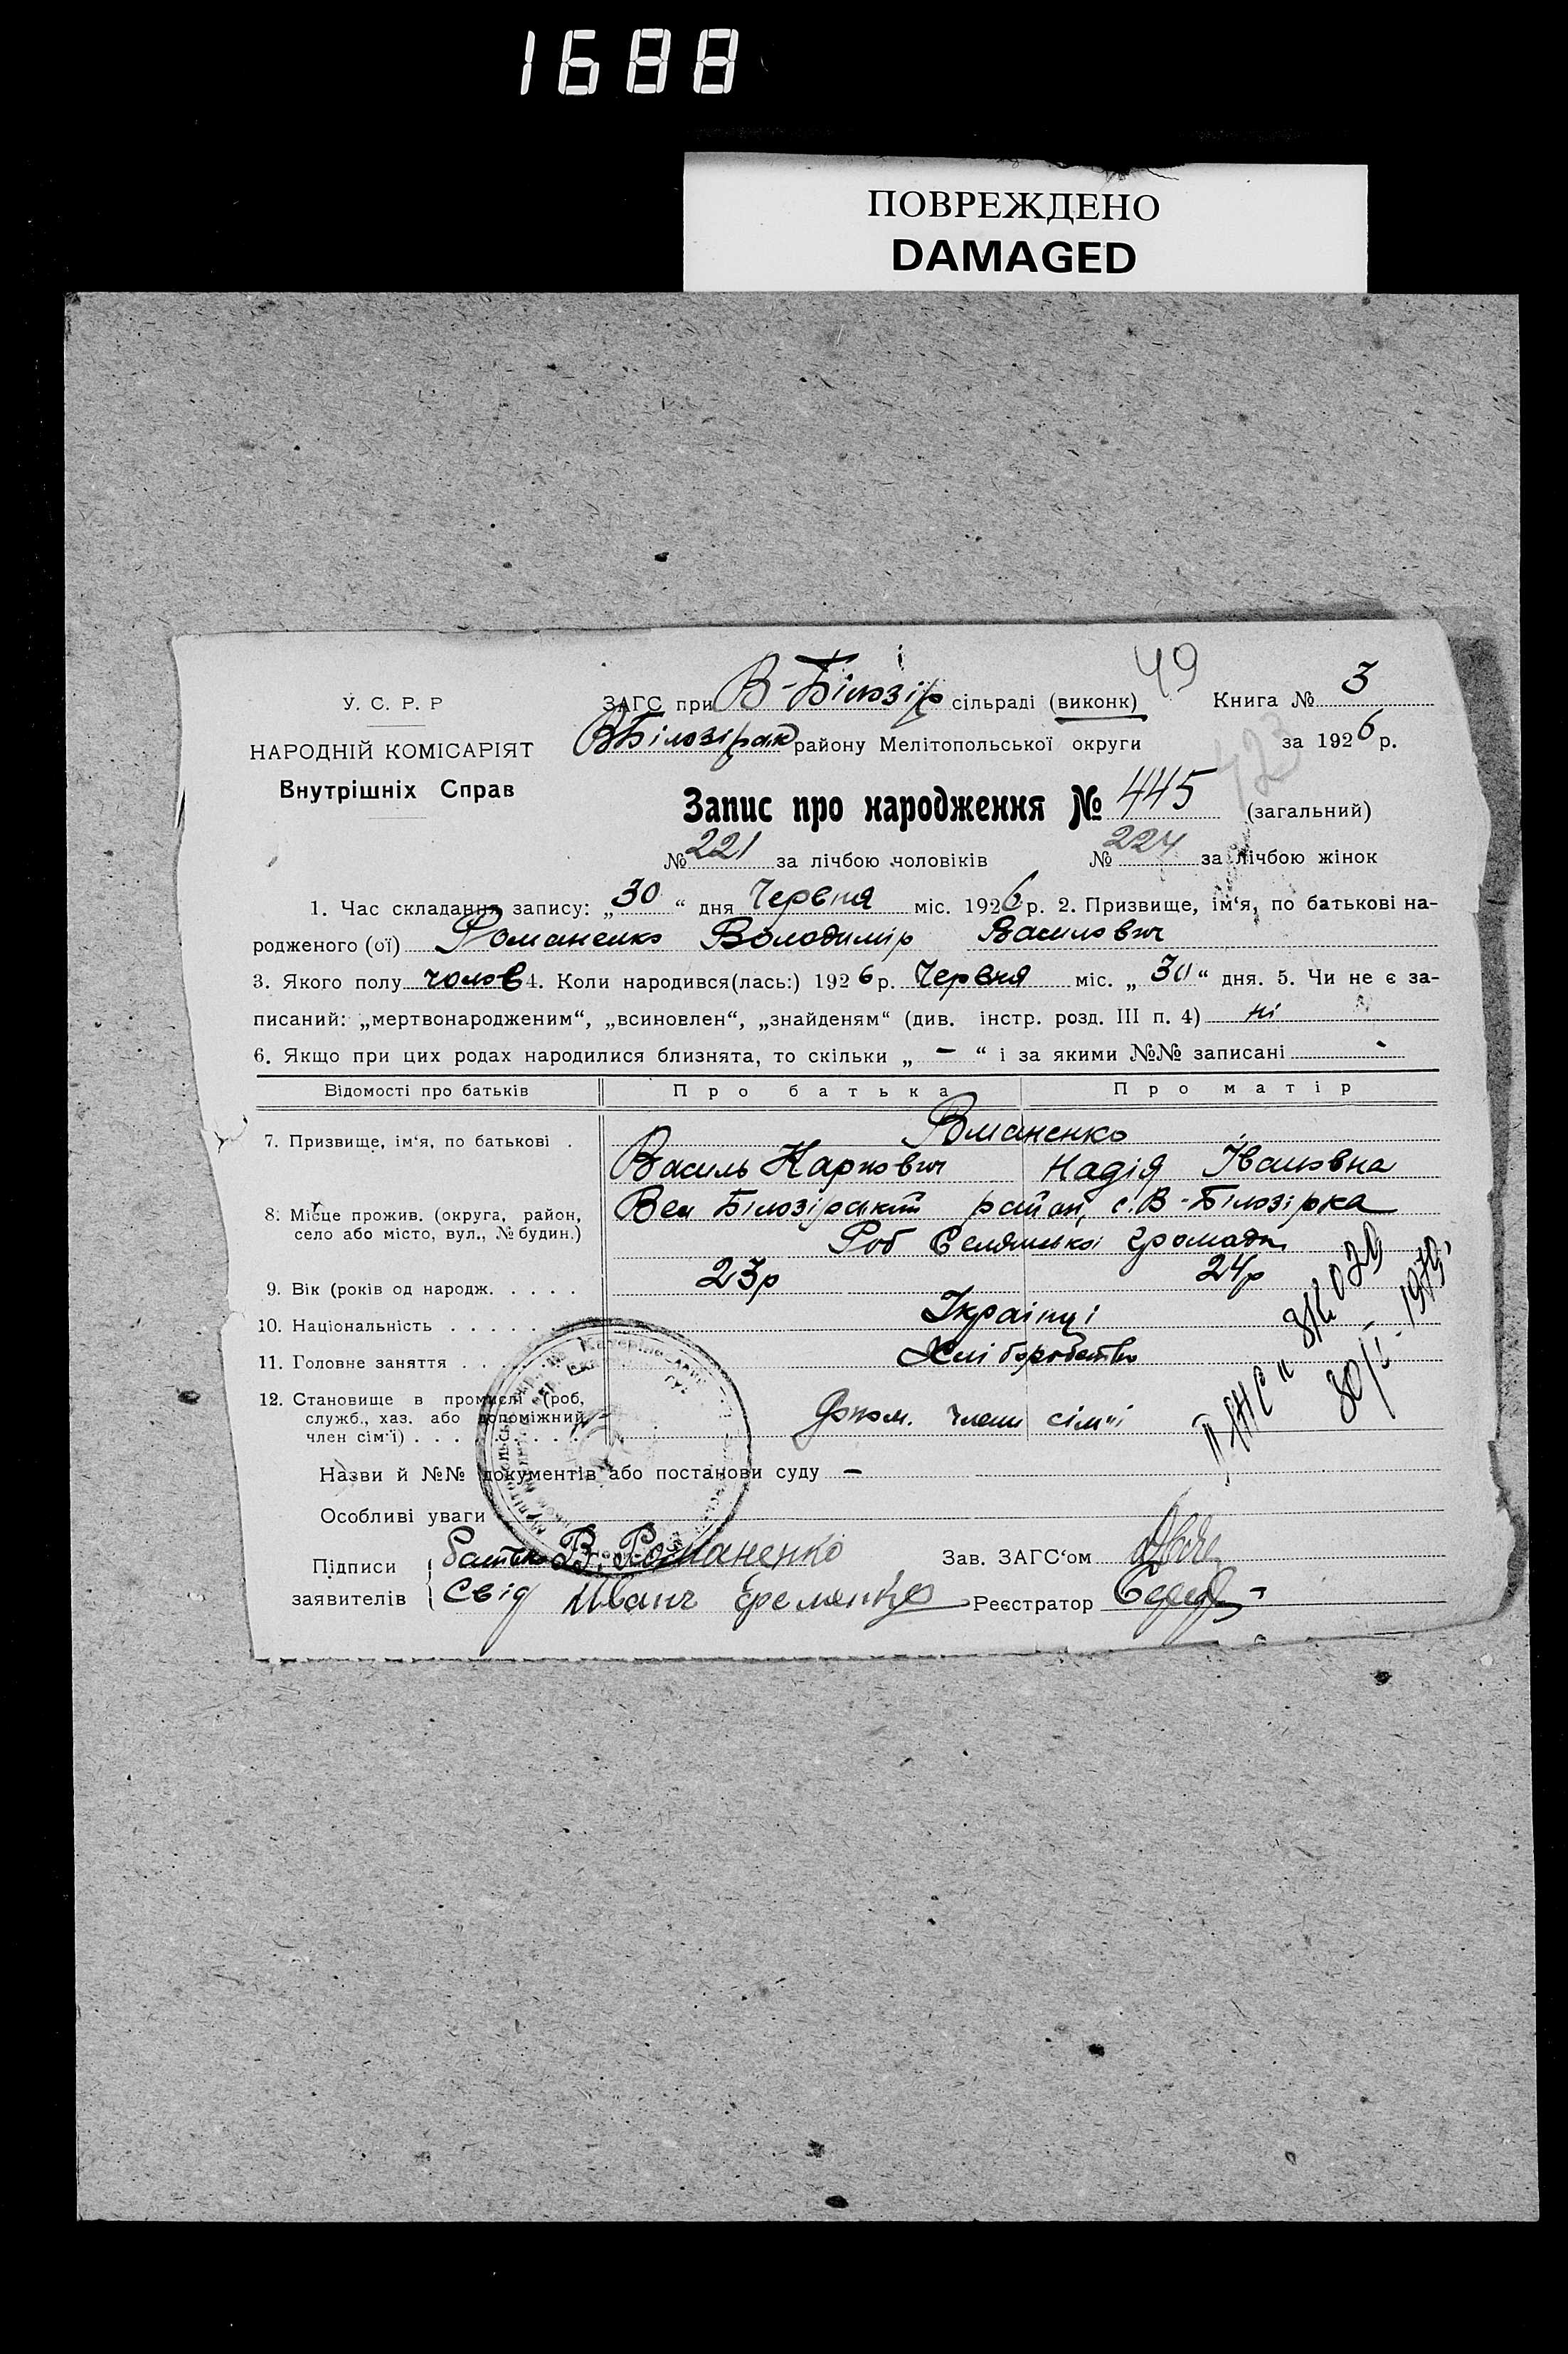 1688
ПОВРЕЖДЕНО
DAMAGED
49
У. С. Р. Р
НАРОДНІЙ КОМІСАРІЯТ
Внутрішніх Справ
ЗАГС при В-Білозір сільраді (виконк) Книга № 3
ВБілозірск району Мелітопольської округи за 1926 р.
423
Запис про народження № 445 (загальний)
№ 221 за лічбою чоловіків № 224 за лічбою жінок
1. Час складання запису: „30“ дня Червня міс. 1926 р. 2. Призвище, ім‘я, по батькові на-
родженого (ої) Романенко Володимір Василович
3. Якого полу чолов 4. Коли народився(лась:) 1926 р. Червня міс. „30“ дня. 5. Чи не є за-
писаний: „мертвонародженим“, „всиновлен“, „знайденям“ (див. інстр. розд. III п. 4) ні
6. Якщо при цих родах народилися близнята, то скільки „ – “ і за якими №№ записані -
Відомості про батьків Про батька Про матір
7. Призвище, ім‘я, по батькові . Романенко
Василь Карпович Надія Івановна
8. Місце прожив. (округа, район, село або місто, вул., № будин.) Вел Білозірський район, с. В-Білозірка
Роб Селянської громади
9. Вік (років од народж. . . . . 23р 24р
10. Національність . . . . . . Українці
11. Головне заняття . . . . Хліборобство
12. Становище в промислі (роб, служб., хаз. або допоміжний член сім‘ї) . . . . члени сімʼї
30/ 1979
Назви й №№ документів або постанови суду –
Особливі уваги
Підписи заявителів
батько В. Романенко Зав. ЗАГС‘ом
Свід Иванъ Еременко Реєстратор